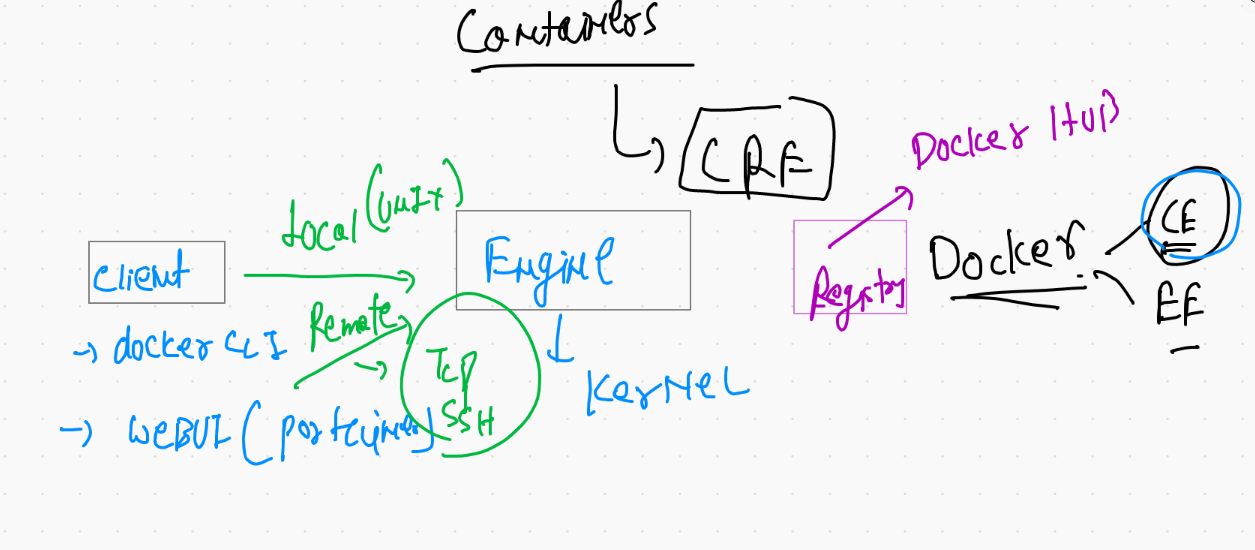 Containers
CRE
Docker Hub
Local (unix)
Client
Engine
Registry
Docker
CE
EE
Remote
→ docker CLI
Tcp
SSH
Kernel
→ WEBUI (portainer)